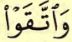 وَٱتَّقَوْا۟